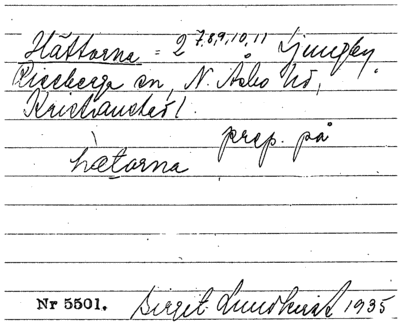 Hättorna = 2 7,8,9,10,11 Ljungby
Riseberga sn, N. Åsbo hd,
Kristianstad l.
prep. på
hætorna
Nr 5501. Birgit Lundkvist 1935